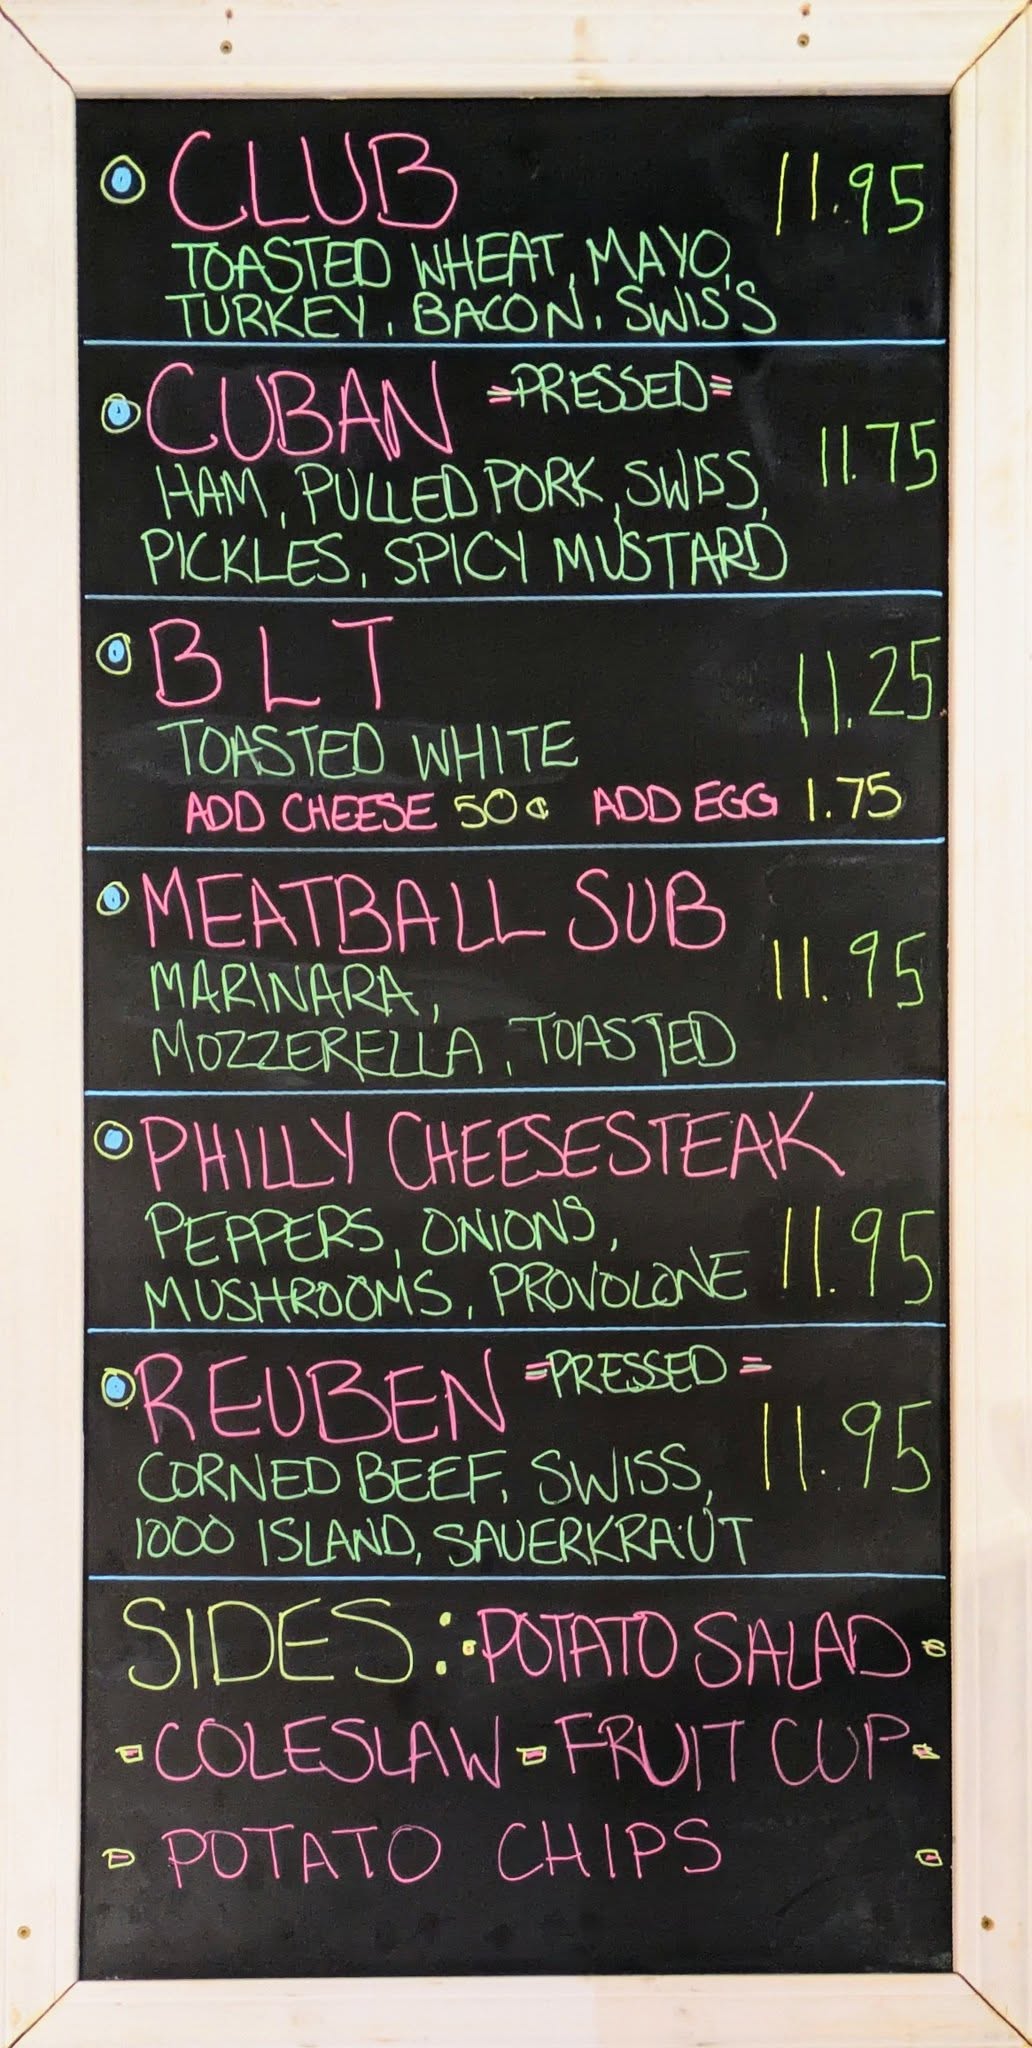 CLUB 11.95
TOASTED WHEAT, MAYO,
TURKEY, BACON, SWISS
CUBAN =PRESSED= 11.75
HAM, PULLED PORK, SWISS,
PICKLES, SPICY MUSTARD
BLT 11.25
TOASTED WHITE
ADD CHEESE 50¢ ADD EGG 1.75
MEATBALL SUB 11.95
MARINARA,
MOZZERELLA, TOASTED
PHILLY CHEESESTEAK
PEPPERS, ONIONS, 11.95
MUSHROOMS, PROVOLONE
REUBEN =PRESSED= 11.95
CORNED BEEF, SWISS,
1000 ISLAND, SAUERKRAUT
SIDES: POTATO SALAD
COLESLAW - FRUIT CUP
POTATO CHIPS